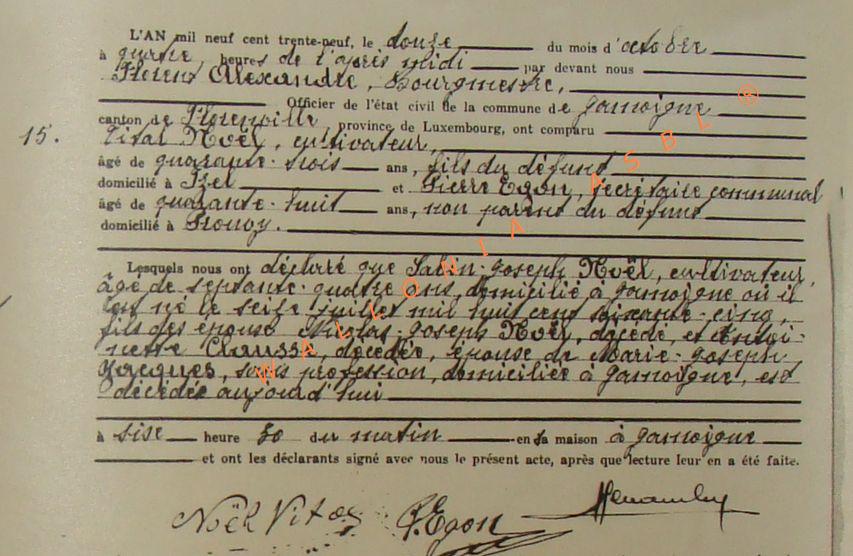 L'AN mil neuf cent trente-neuf, le douze du mois d'octobre
à quatre, heures de l'après midi par devant nous
Florent Alexandre, Bourgmestre,
Officier de l'état civil de la commune de Jamoigne
canton de Florenville, province de Luxembourg, ont comparu
15. Vital Noël, cultivateur
âgé de quarante-trois ans, fils du défunt
domicilié à Izel et Pierre Egon, secrétaire communal
âgé de quarante-huit ans, non parent du défunt
domicilié à Prouvy.
Lesquels nous ont déclaré que Sabin-Joseph Noël, cultivateur,
âgé de septante-quatre ans, domicilié à Jamoigne où il
est né le seize juillet mil huit cent soixante-cinq,
fils des époux Nicolas-Joseph Noël, décédé, et Antoi-
nette Claussé, décédée, époux de Marie-Joseph
Jacques, sans profession, domiciliée à Jamoigne, est
décédée aujourd'hui
à sise heure 30 du matin en sa maison à Jamoigne
et ont les déclarants signé avec nous le présent acte, après que lecture leur en a été faite.
Noël Vital P. Egon
WALLONIA ASBL ®